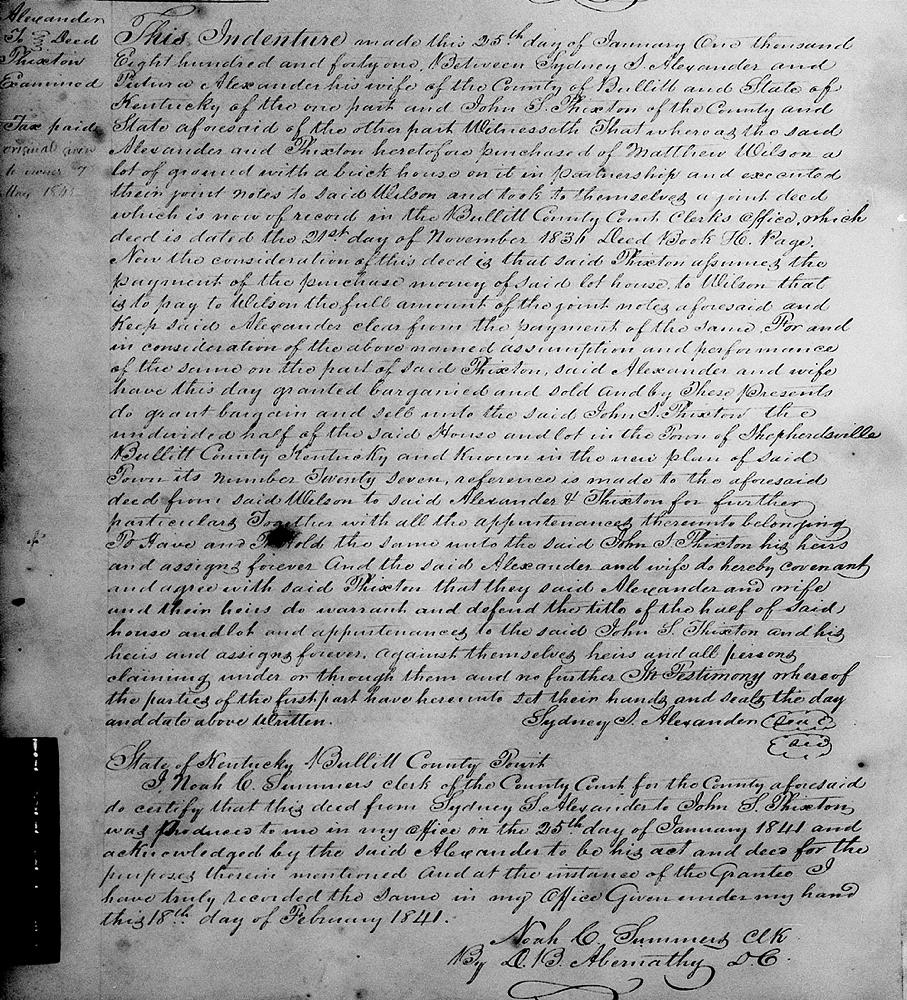 Alexander
To Deed
Thixton
Examined
Tax paid
original
to owner 7
May 1841
This Indenture made this 25th day of January One thousand
Eight hundred and forty one, Between Sydney S. Alexander and
Alexander his wife of the County of Bullitt and State of
Kentucky of the one part and John S. Thixton of the County and
State aforesaid of the other part Witnesseth That whereas the said
Alexander and Thixton heretofore purchased of Matthew Wilson a
lot of ground with a brick house on it in partnership and executed
their joint notes to said Wilson and took to themselves a joint deed
which is now of record in the Bullitt County Court Clerks office, which
deed is dated the 21st day of November 1836 Deed Book H. Page,
Now the consideration of this deed is that said Thixton assumes the
payment of the purchase money of said lot house, to Wilson that
is to pay to Wilson the full amount of the joint notes aforesaid and
Keep said Alexander clear from the payment of the same. For and
in consideration of the above named assumption and performance
of the same on the part of said Thixton, said Alexander and wife
have this day granted bargained and sold and by These Presents
do grant bargain and sell unto the said John S. Thixton the
undivided half of the said House and lot in the Town of Shepherdsville
Bullitt County Kentucky and Known in the new plan of said
Town its number Twenty Seven, reference is made to the aforesaid
deed from said Wilson to said Alexander & Thixton for further
particulars Together with all the appurtenances thereunto belonging
To Have and To Hold the same unto the said John S Thixton his heirs
and assigns forever And the said Alexander and wife do hereby covenant
and agree with said Thixton that they said Alexander and wife
and their heirs do warrant and defend the title of the half of said
house and lot and appurtenances to the said John S. Thixton and his
heirs and assigns forever. against themselves heirs and all persons
claiming under or through them and no further In Testimony whereof
the parties of the first part have hereunto set their hands and seals the day
and date above Written. Sydney S. Alexander Seal
Seal
State of Kentucky Bullitt County Court
I, Noah C. Summers clerk of the County Court for the County aforesaid
do certify that this deed from Sydney S. Alexander to John S. Thixton
was produced to me in my office on the 25th day of January 1841 and
acknowledged by the said Alexander to be his act and deed for the
purposes therein mentioned And at the instance of the Grantee I
have truly recorded the same in my Office Given under my hand
this 18th day of February 1841.
Noah C. Summers Clk
By D. B. Abernathy D.C.